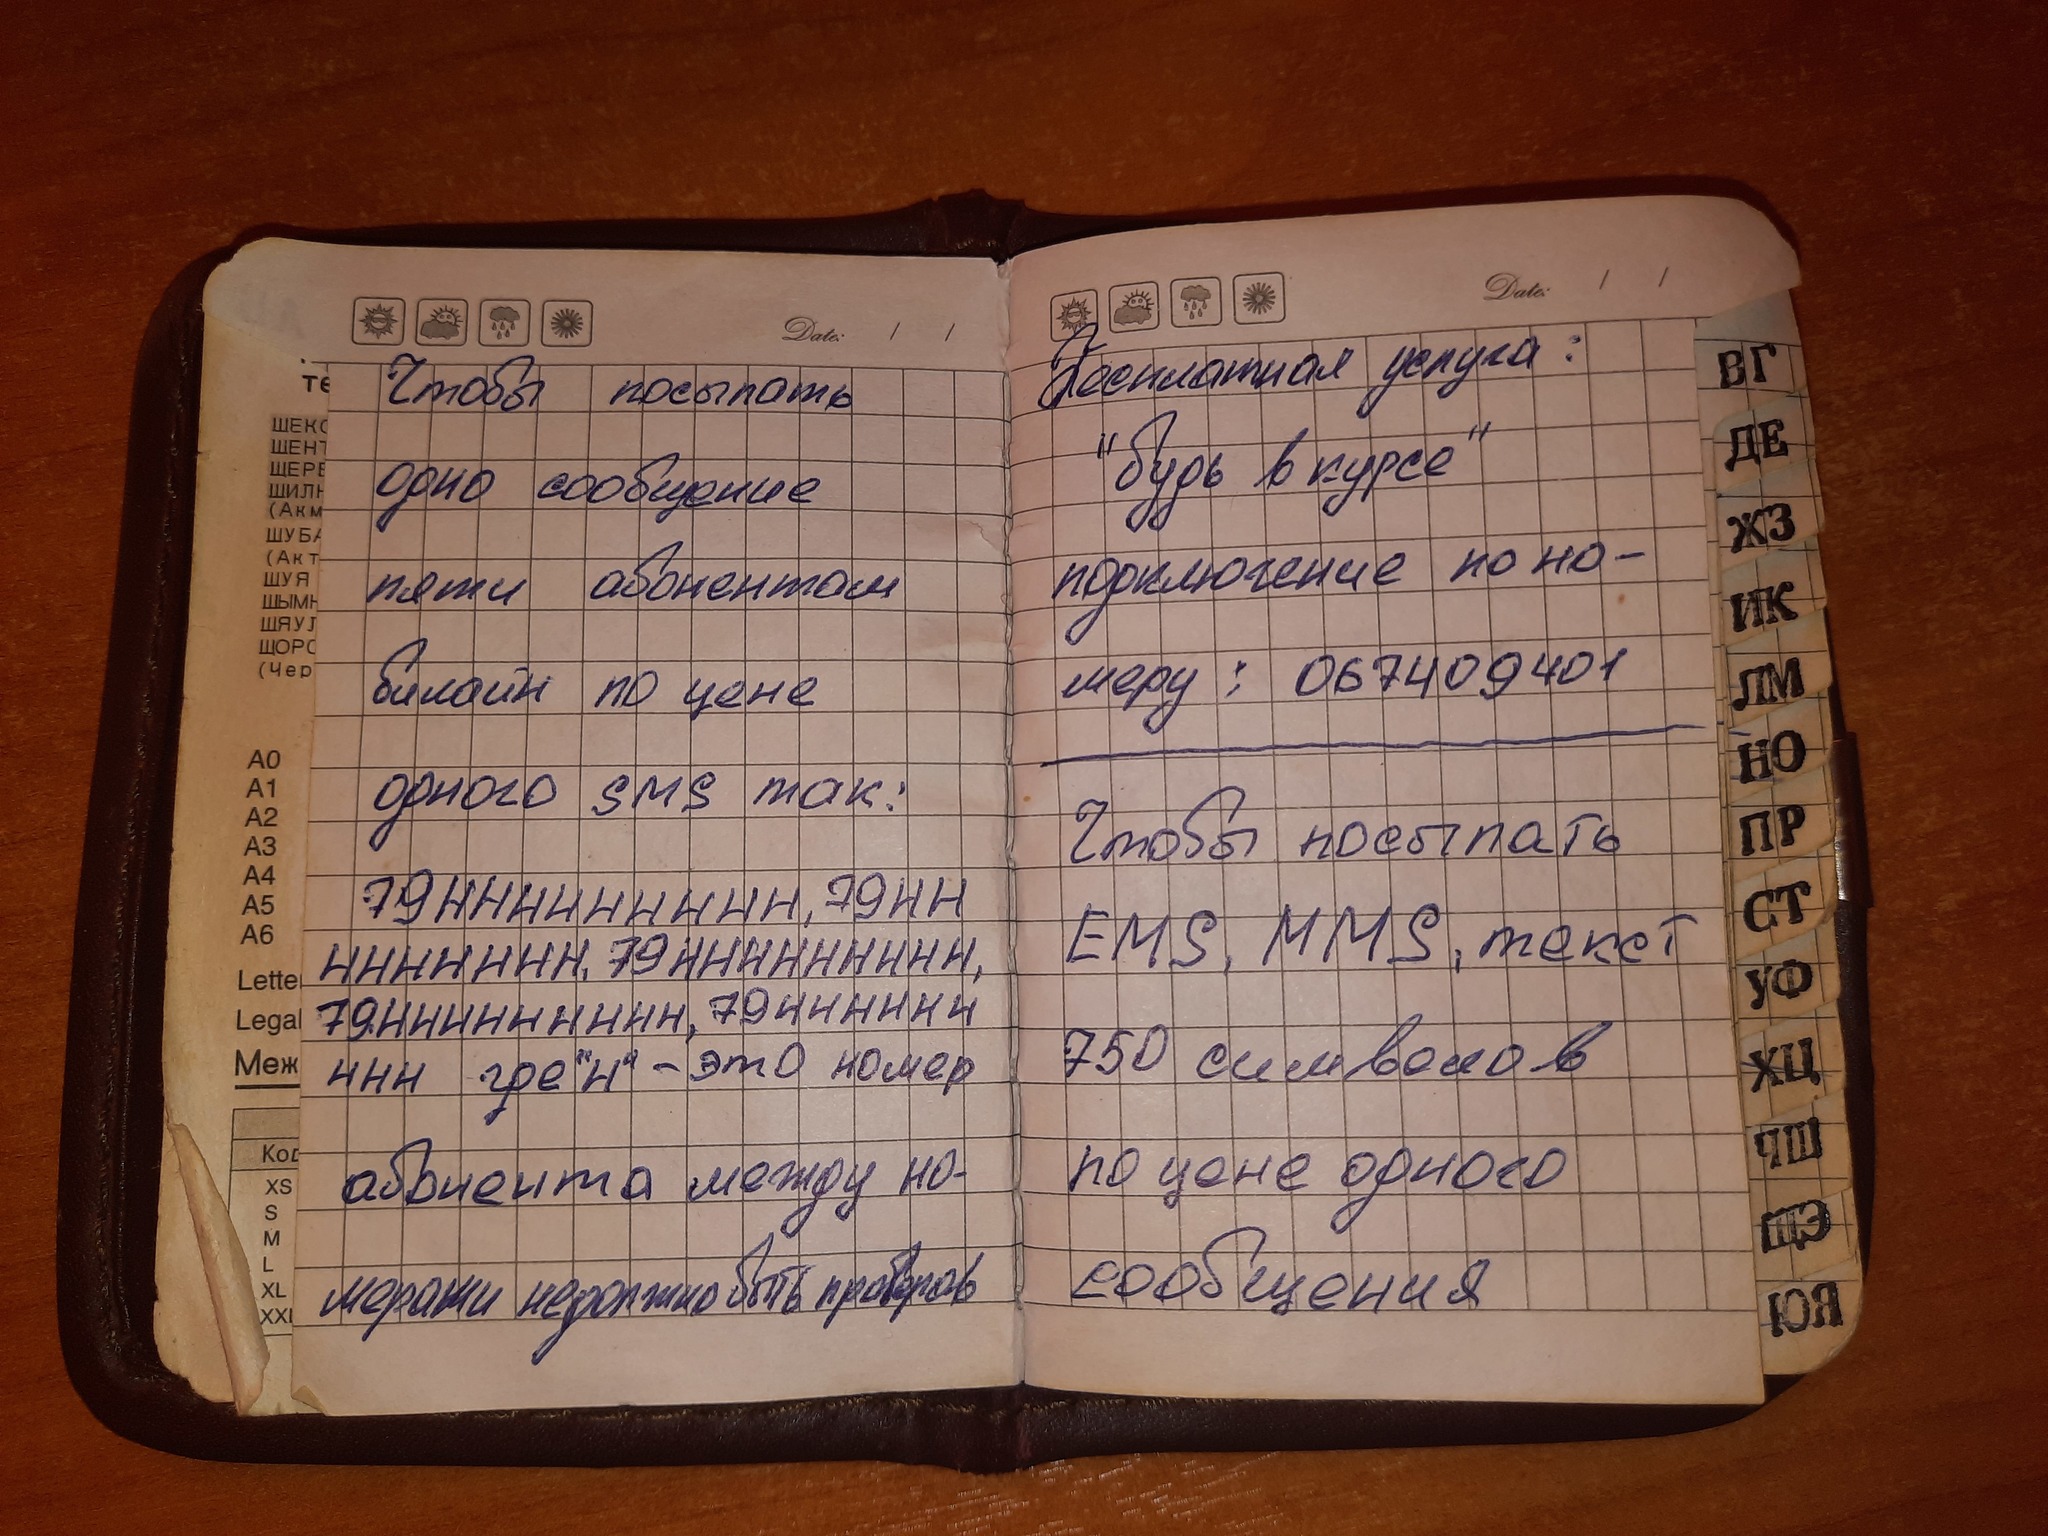 Date: / /
те
ШЕКС
ШЕНТ
ШЕРЕ
ШИЛК
(Акм
ШУБА
(Акт
ШУЯ
ШЫМК
ШЯУЛ
ЩОРС
(Чер
А0
А1
А2
А3
А4
А5
А6
Letter
Legal
Меж
Код
XS
S
M
L
XL
XXL
Чтобы посылать
одно сообщение
пяти абонентам
билайн по цене
одного SMS так:
79ННННННННН, 79НН
ННННННН, 79ННННННННН,
79ННННННННН, 79НННННН
ННН где "Н" - это номер
абонента между но-
мерами не должно быть пробелов
Date: / /
Бесплатная услуга:
"будь в курсе"
подключение по но-
меру: 067409401
Чтобы посылать
EMS, MMS, текст
750 символов
по цене одного
сообщения
ВГ
ДЕ
ЖЗ
ИК
ЛМ
НО
ПР
СТ
УФ
ХЦ
ЧШ
ЩЭ
ЮЯ